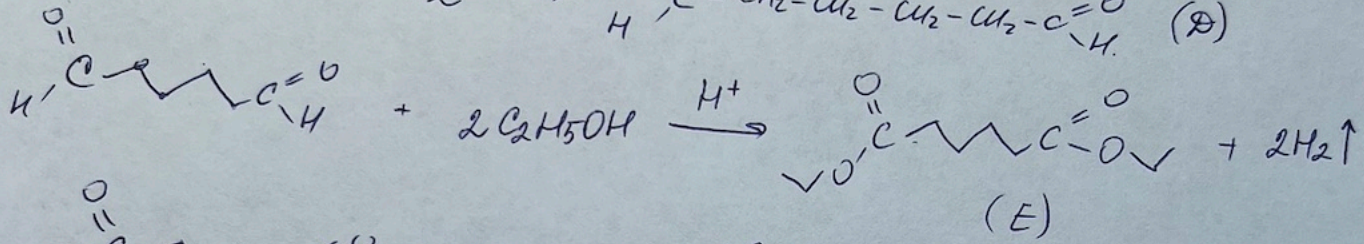 H C CH2 - CH2 - CH2 - CH2 - C = O H. (D)
O = C H C = O H + 2C2H5OH H+ → O = C O C = O - O + 2H2↑
(E)
O